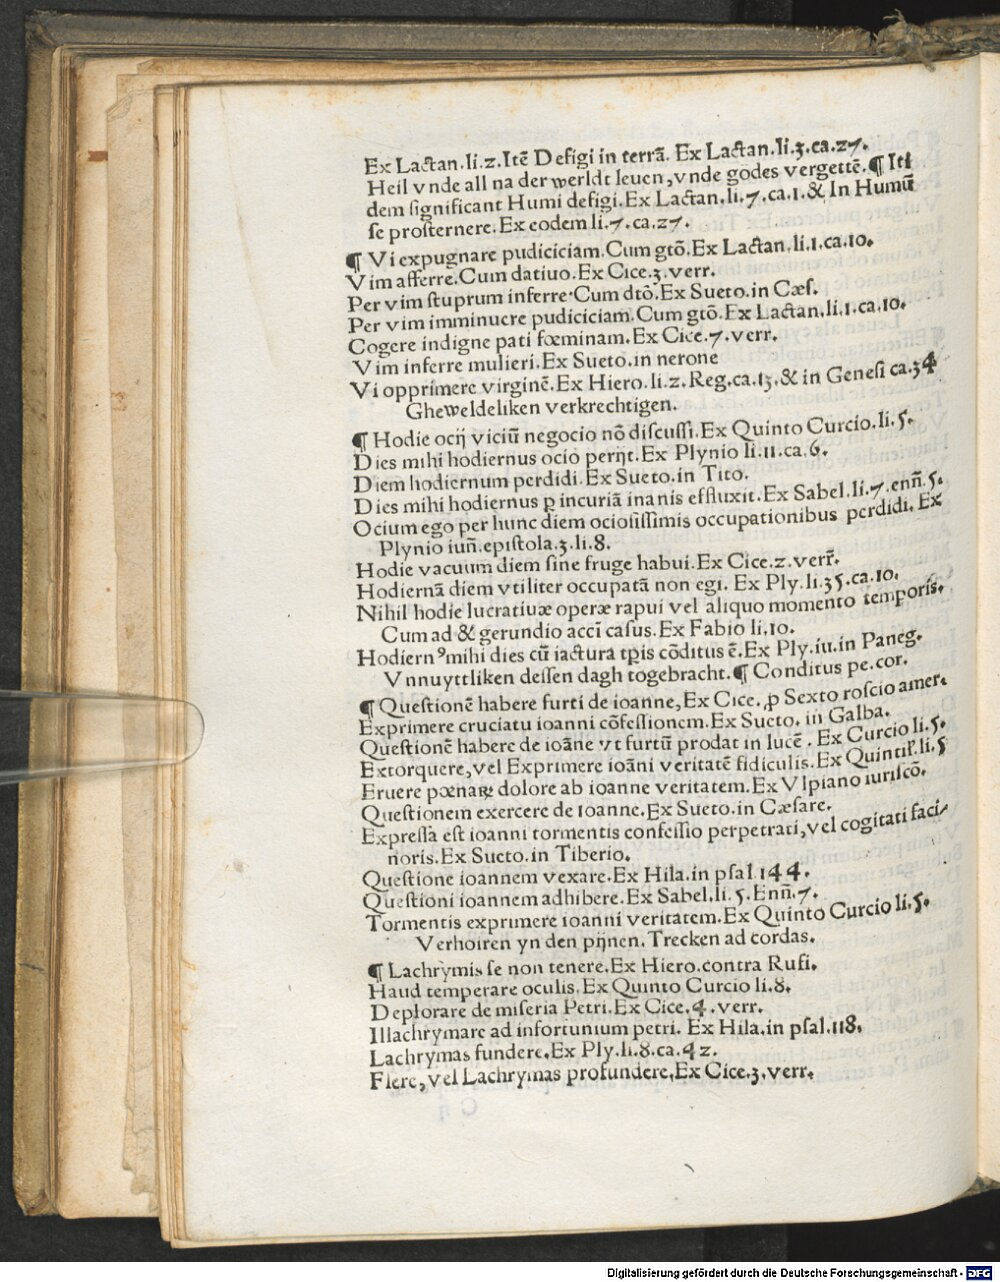 Ex Lactan.li.2.Itē Defigi in terrā. Ex Lactan.li.3.ca.27.
Heil vnde all na der werldt leuen,vnde godes vergettē.¶ Iti
dem significant Humi defigi.Ex Lactan.li.7.ca.1.& In Humū
se prosternere.Ex eodem li.7.ca.27.
¶ Vi expugnare pudiciciam.Cum gtō.Ex Lactan.li.1.ca.10.
Vim afferre.Cum datiuo.Ex Cice.3.verr.
Per vim stuprum inferre.Cum dtō.Ex Sueto.in Cæs.
Per vim imminuere pudiciciam.Cum gtō.Ex Lactan.li.1.ca.10.
Cogere indigne pati fœminam.Ex Cice.7.verr.
Vim inferre mulieri.Ex Sueto.in nerone
Vi opprimere virginē.Ex Hiero.li.2.Reg.ca.13.& in Genesi ca.34
Gheweldeliken verkrechtigen.
¶ Hodie ocij viciū negocio nō discussi.Ex Quinto Curcio.li.5.
Dies mihi hodiernus ocio perijt.Ex Plynio li.11.ca.6.
Diem hodiernum perdidi.Ex Sueto.in Tito.
Dies mihi hodiernus ꝑ incuriā inanis effluxit.Ex Sabel.li.7.enn̄.5.
Ocium ego per hunc diem ociosissimis occupationibus perdidi.Ex
Plynio iun̄.epistola.3.li.8.
Hodie vacuum diem sine fruge habui.Ex Cice.2.verr̄.
Hodiernā diem vtiliter occupatā non egi. Ex Ply.li.35.ca.10.
Nihil hodie lucratiuæ operæ rapui vel aliquo momento temporis.
Cum ad & gerundio accī casus.Ex Fabio li.10.
Hodiernꝰ mihi dies cū iactura tp̄is cōditus ē.Ex Ply.iu.in Paneg.
Vnnuyttliken deissen dagh togebracht.¶ Conditus pe.cor.
¶ Questionē habere furti de ioanne,Ex Cice.,p Sexto roscio amer.
Exprimere cruciatu ioanni cōfessionem.Ex Sueto. in Galba.
Questionē habere de ioāne vt furtū prodat in lucē . Ex Curcio li.5.
Extorquere,vel Exprimere ioāni veritatē fidiculis.Ex Quintil̄.li.5
Eruere pœnaꝝ dolore ab ioanne veritatem.Ex Vlpiano iuriscō.
Questionem exercere de ioanne.Ex Sueto.in Cæsare.
Expressa est ioanni tormentis confessio perpetrati,vel cogitati faci/
noris.Ex Sueto.in Tiberio.
Questione ioannem vexare.Ex Hila.in psal.144.
Questioni ioannem adhibere.Ex Sabel.li.5.Enn̄.7.
Tormentis exprimere ioanni veritatem.Ex Quinto Curcio li.5.
Verhoiren yn den pijnen.Trecken ad cordas.
¶ Lachrymis se non tenere.Ex Hiero.contra Rufi.
Haud temperare oculis.Ex Quinto Curcio li.8.
Deplorare de miseria Petri.Ex Cice.4.verr.
Illachrymare ad infortunium petri. Ex Hila.in psal.118.
Lachrymas fundere.Ex Ply.li.8.ca.42.
Flere,vel Lachrymas profundere.Ex Cice.3.verr.
Digitalisierung gefördert durch die Deutsche Forschungsgemeinschaft - DFG